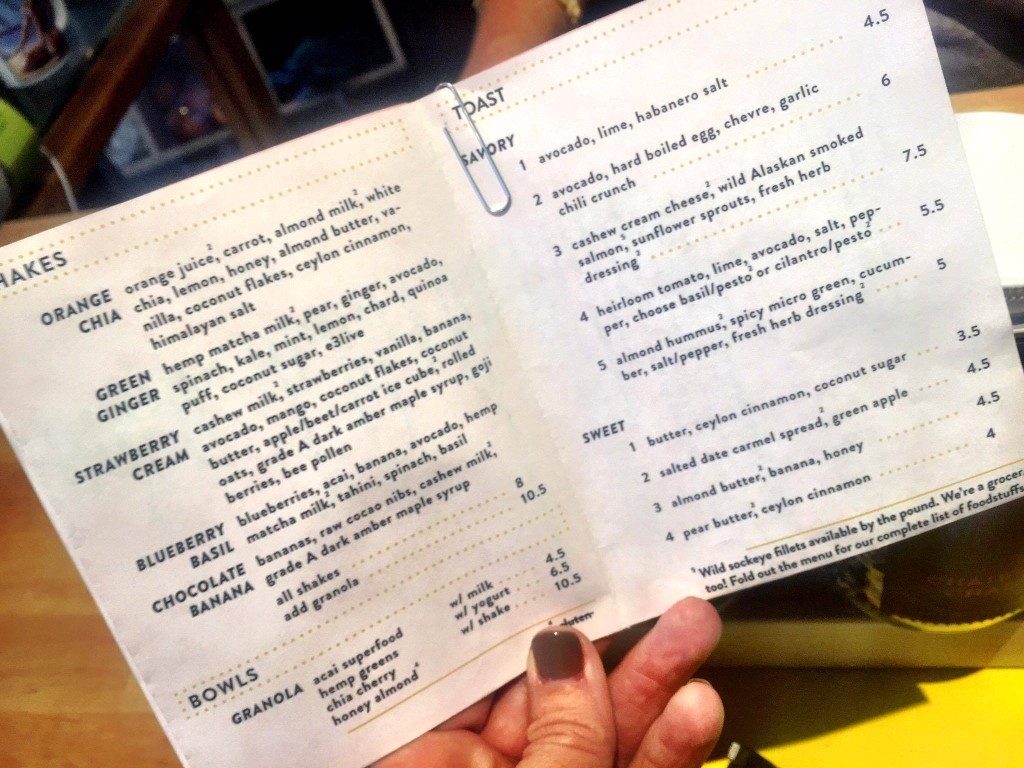 HAKES
ORANGE CHIA orange juice², carrot, almond milk², white
chia, lemon, honey, almond butter, va-
nilla, coconut flakes, ceylon cinnamon,
himalayan salt
GREEN GINGER hemp matcha milk², pear, ginger, avocado,
spinach, kale, mint, lemon, chard, quinoa
puff, coconut sugar, e3live
STRAWBERRY CREAM cashew milk², strawberries, vanilla, banana,
avocado, mango, coconut flakes, coconut
butter, apple/beet/carrot ice cube², rolled
oats, grade A dark amber maple syrup, goji
berries, bee pollen
BLUEBERRY BASIL blueberries, acai, banana, avocado, hemp
matcha milk², tahini, spinach, basil
CHOCOLATE BANANA bananas, raw cocao nibs, cashew milk²,
grade A dark amber maple syrup
all shakes 8
add granola 10.5
BOWLS
w/ milk 4.5
w/ yogurt 6.5
w/ shake 10.5
GRANOLA acai superfood
hemp greens
chia cherry
honey almond⁴
gluten-
TOAST
SAVORY
1 avocado, lime, habanero salt 4.5
2 avocado, hard boiled egg, chevre, garlic
chili crunch 6
3 cashew cream cheese², wild Alaskan smoked
salmon⁵, sunflower sprouts, fresh herb
dressing² 7.5
4 heirloom tomato, lime, avocado, salt, pep-
per, choose basil/pesto² or cilantro/pesto² 5.5
5 almond hummus², spicy micro green, cucum-
ber, salt/pepper, fresh herb dressing² 5
SWEET
1 butter, ceylon cinnamon, coconut sugar 3.5
2 salted date carmel spread², green apple 4.5
3 almond butter², banana, honey 4.5
4 pear butter², ceylon cinnamon 4
⁵ Wild sockeye fillets available by the pound. We're a grocer
too! Fold out the menu for our complete list of foodstuffs